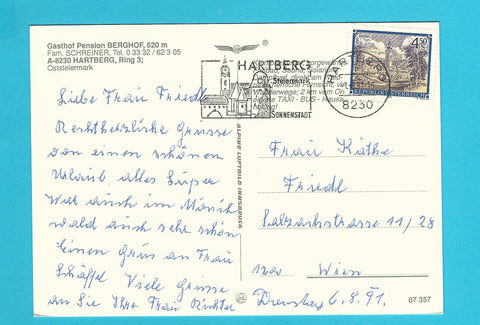 Gasthof Pension BERGHOF, 620 m
Fam. SCHREINER, Tel. 0 33 32 / 62 3 05
A-8230 HARTBERG, Ring 3;
Oststeiermark
HARTBERG
Steiermark
SONNENSTADT
HARTBERG
8230
4.50
REPUBLIK ÖSTERREICH
TAXI - BUS - Haus
ALPINE LUFTBILD INNSBRUCK
Liebe Frau Friedl
Recht herzliche Grüsse
von einem schönen
Urlaub, alles Super
War auch im
wald auch sehr schön
Einen Grus an Frau
Schäffel Viele Grüsse
an Sie Ihre Frau Richter
Frau Käthe
Friedl
Salzachstrasse 11/28
1200 Wien
Dienstag 6.8.91.
87 357